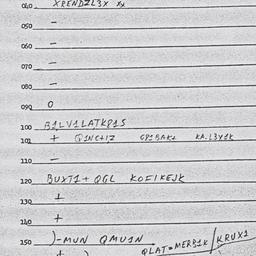 060 XPENDZL3X XX
050 –
060 –
070 –
080 –
090 O
100 B1LV1LATKP1S
101 + Q1NC+1Z GP1BAK2 KA.L3X1K
110 –
120 BUXT1+ QGL KOF1KEJK
130 +
140 +
150 )-MUN QMU1N QLAT=MERB1K/KRUX1